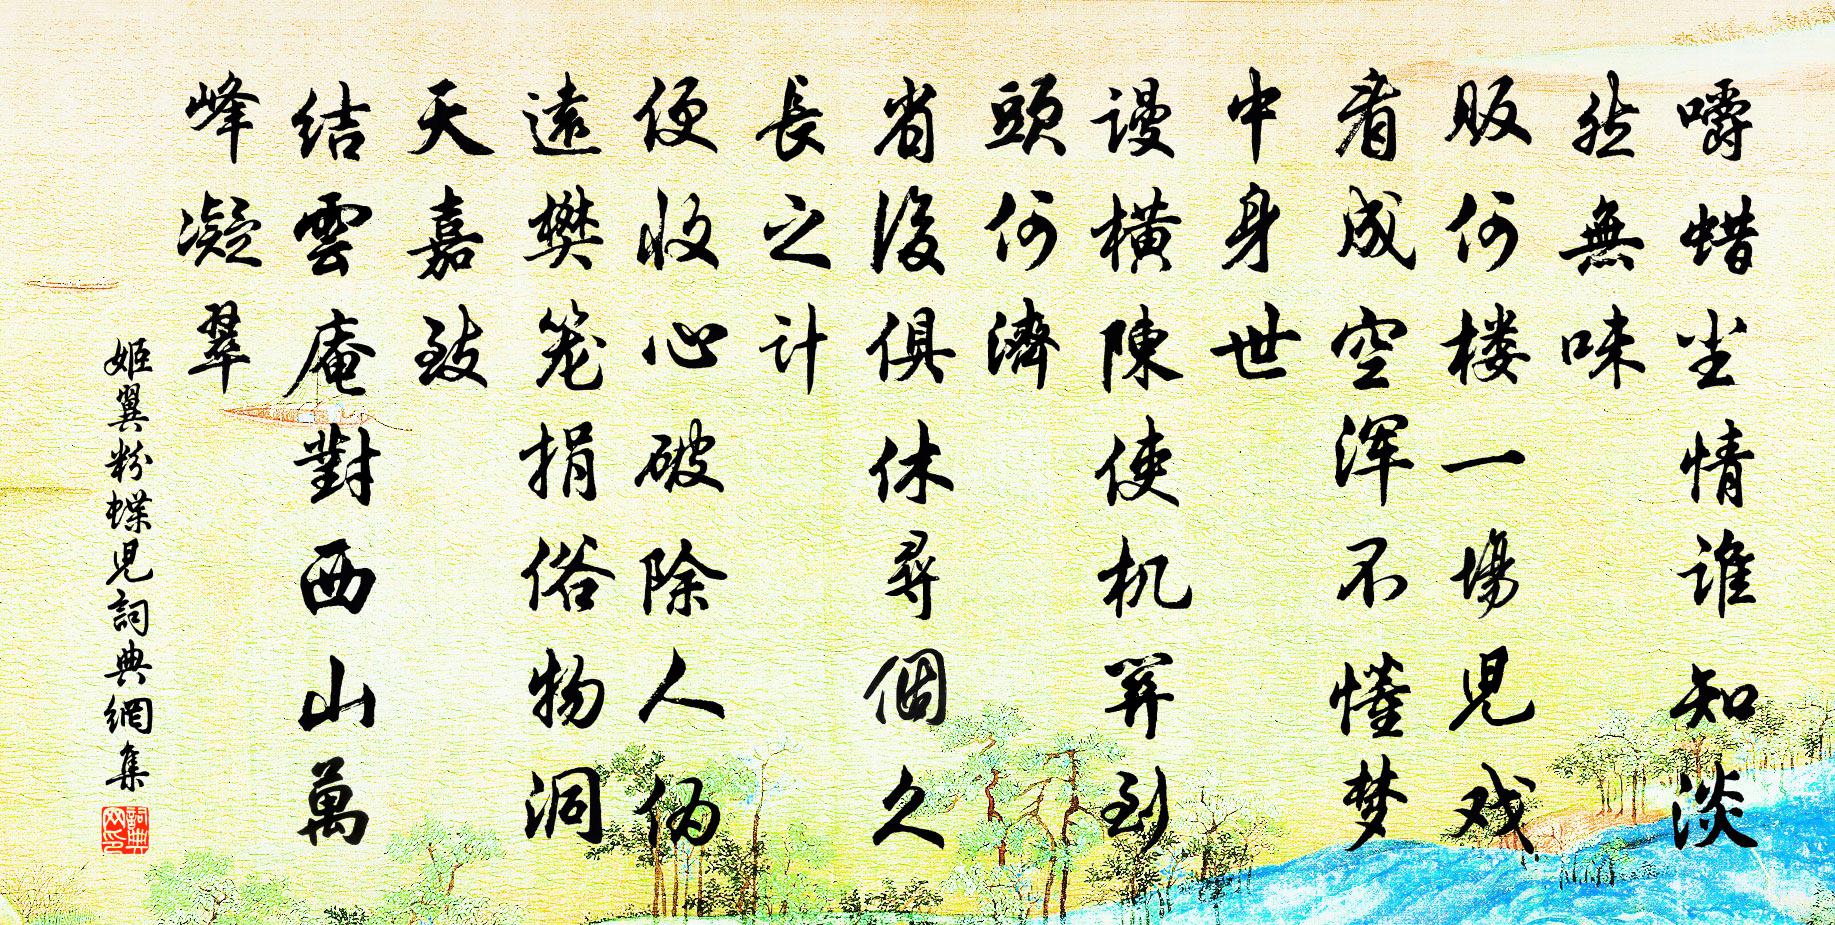 嚼蜡尘情谁知淡
然無味
贩何楼一場児戏
看成空浑不懂梦
中身世
谩横陳使机笄到
頭何濟
省後俱休尋個久
長之计
便收心破除人偽
遠樊笼捐俗物洞
天嘉致
结雲庵對西山萬
峰凝翠
姬翼粉蝶児詞典網集
詞典